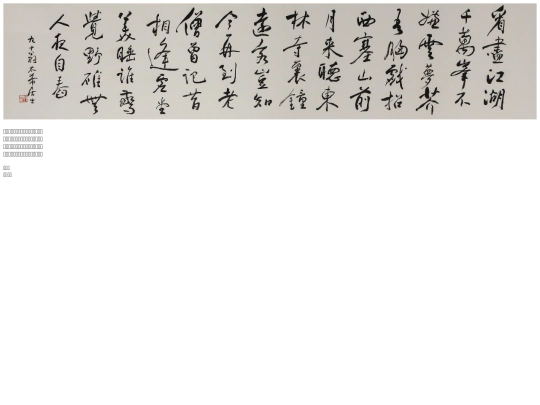 看盡江湖
千萬峯不
嫌雲夢芥
吾胸戲招
西塞山前
月來聽東
林寺裏鐘
遠客豈知
今再到老
僧曾記昔
相逢虛堂
美睡誰驚
覺野碓無
人夜自舂
九十 太希居士